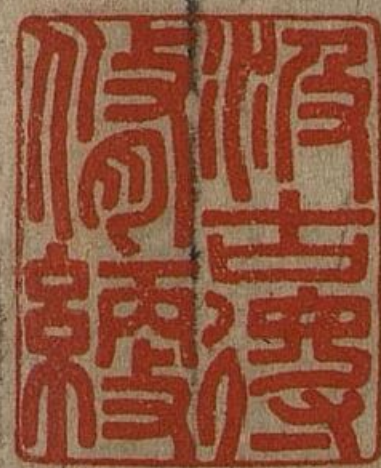 汲古得
脩綆